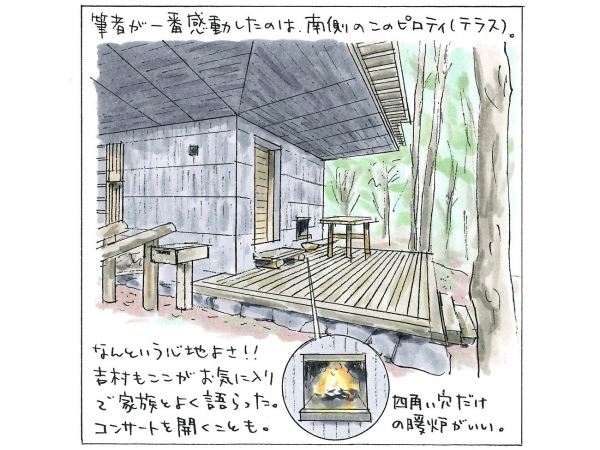 筆者が一番感動したのは、南側のこのピロティ(テラス)。
なんという心地よさ!!
吉村もここがお気に入り
で家族とよく語らった。
コンサートを開くことも。
四角い穴だけ
の暖炉がいい。